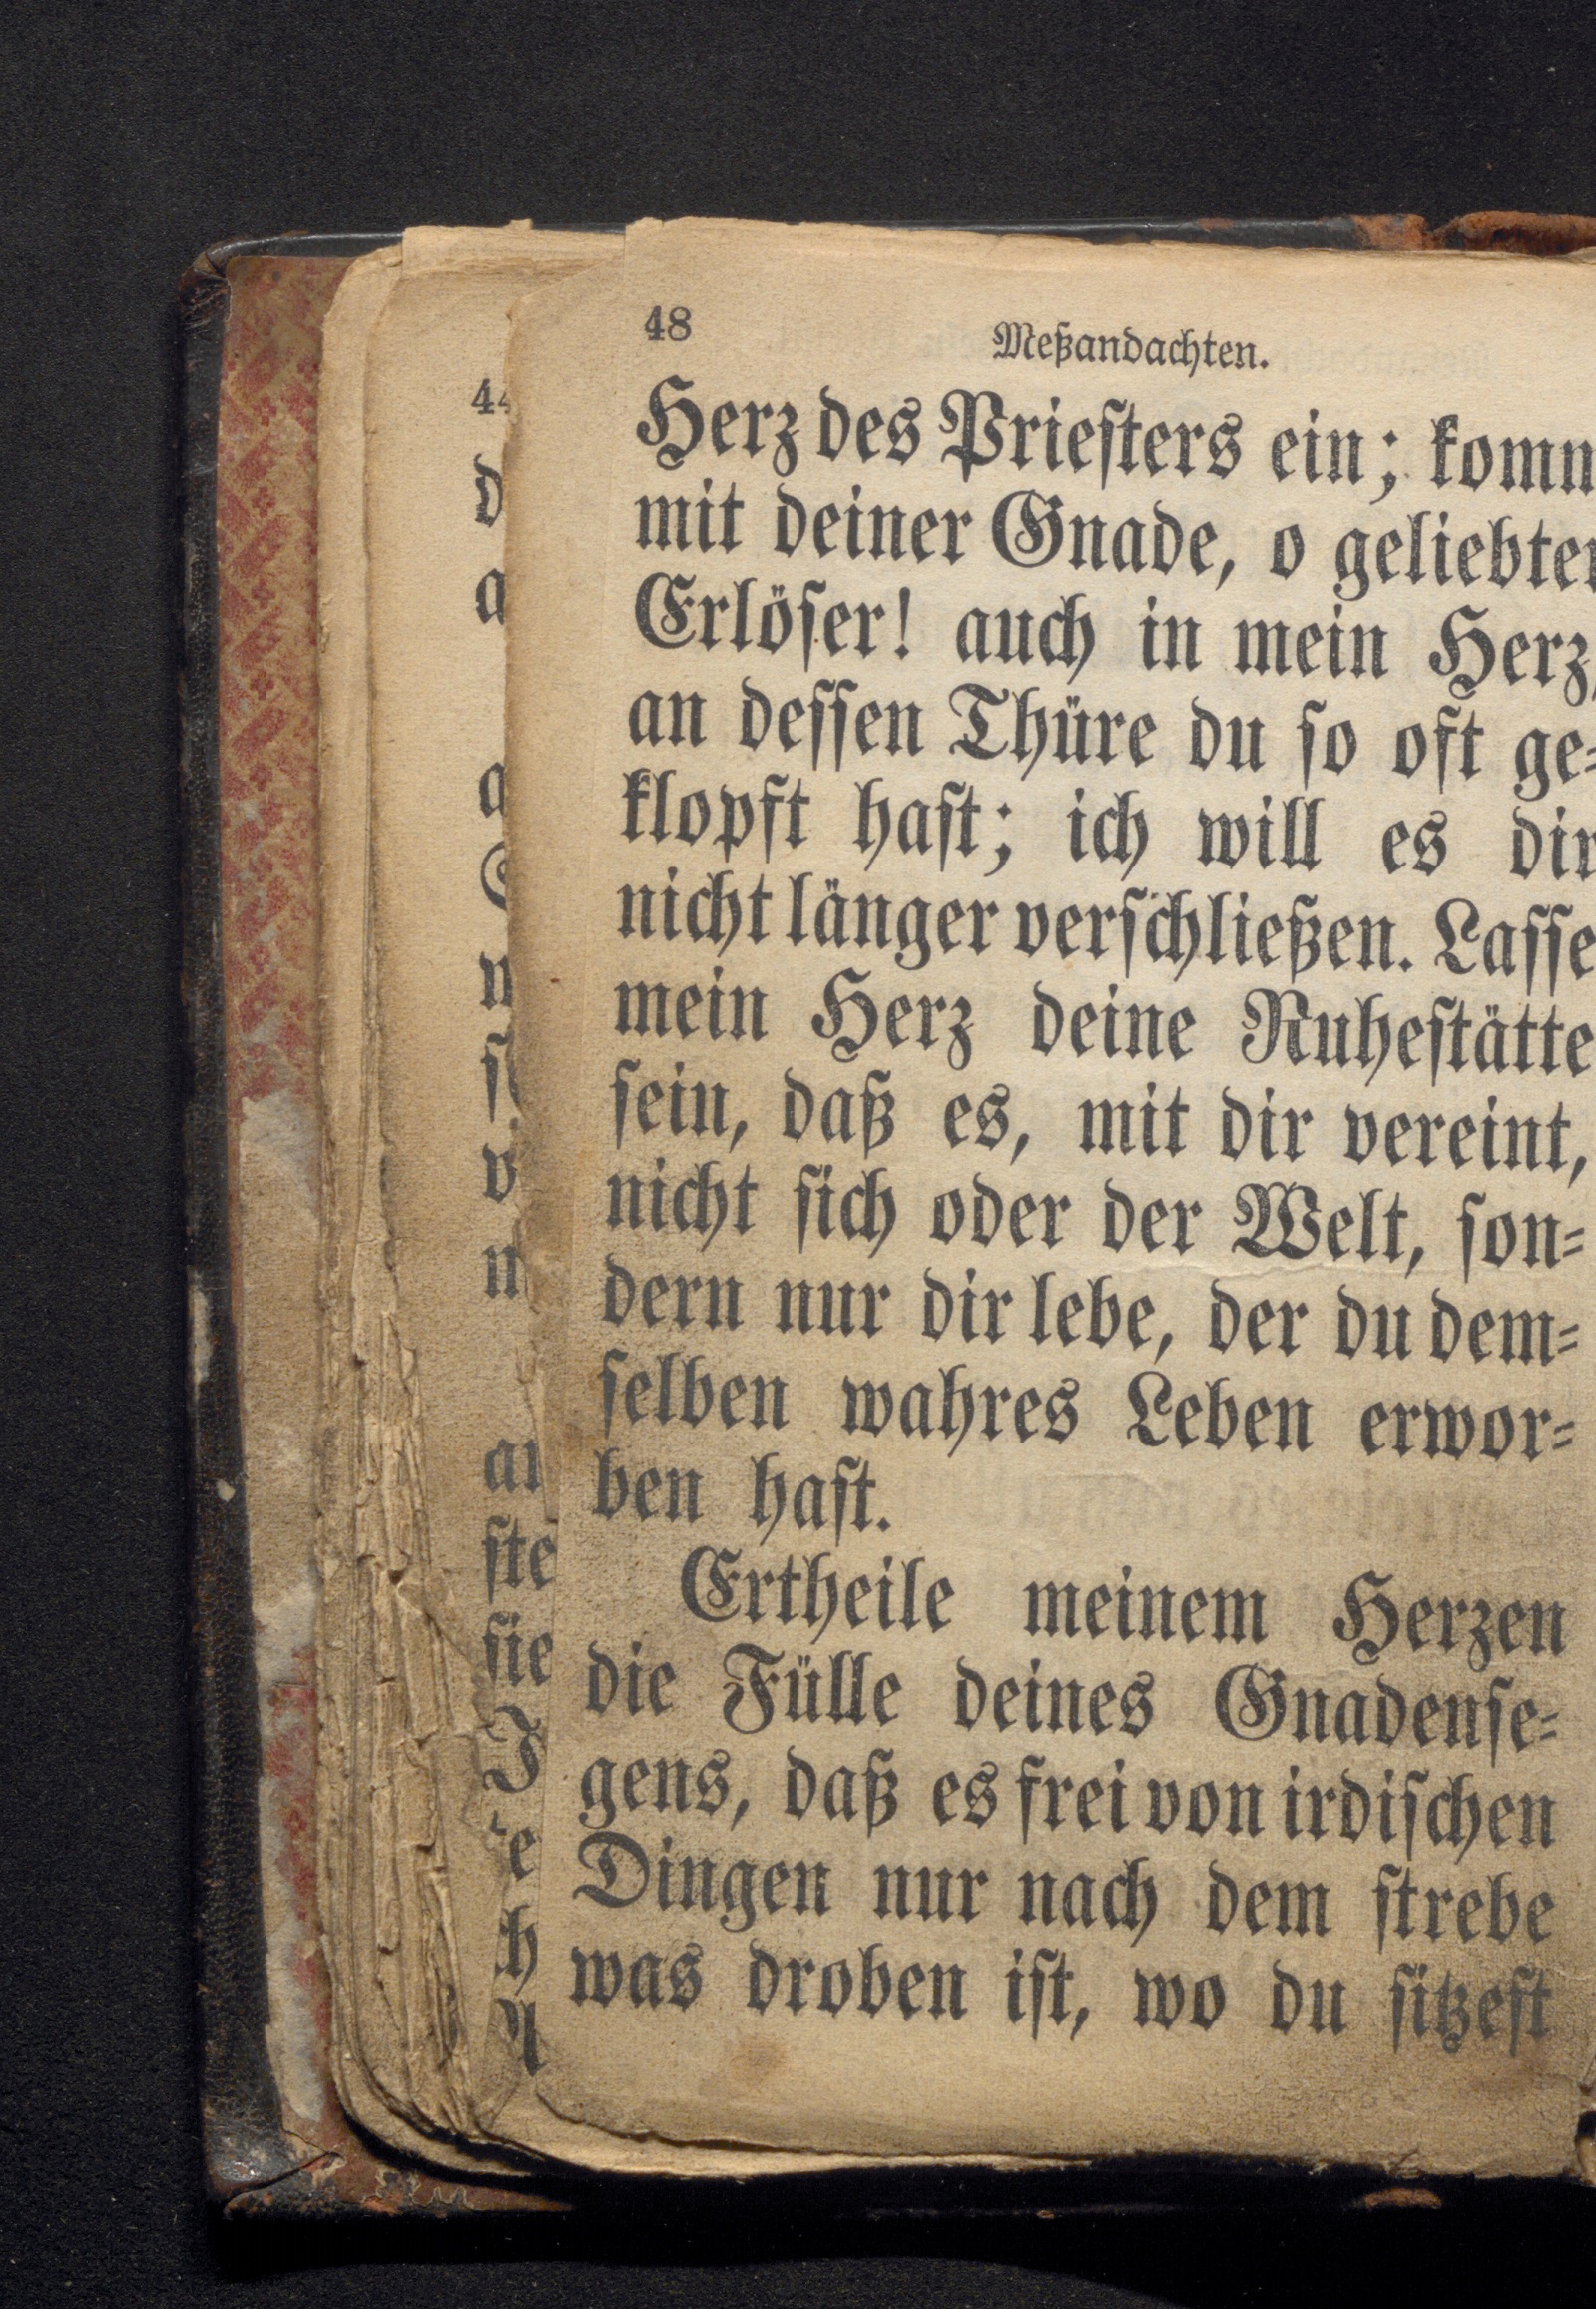 48
Meßandachten.
Herz des Priesters ein; komm
mit deiner Gnade, o geliebter
Erlöser! auch in mein Herz,
an dessen Thüre du so oft ge-
klopft hast; ich will es dir
nicht länger verschließen. Lasse
mein Herz deine Ruhestätte
sein, daß es, mit dir vereint,
nicht sich oder der Welt, son-
dern nur dir lebe, der du dem-
selben wahres Leben erwor-
ben hast.
Ertheile meinem Herzen
die Fülle deines Gnadense-
gens, daß es frei von irdischen
Dingen nur nach dem strebe
was droben ist, wo du sitzest